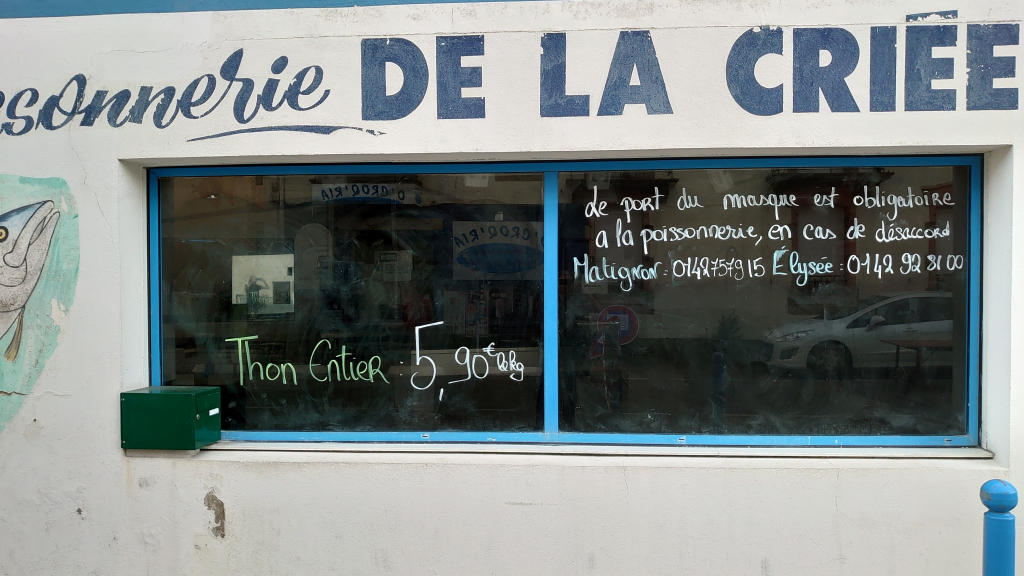 sonnerie DE LA CRIÉE
O'CROQ'RIA
O'CROQ'RIA
Le port du masque est obligatoire
a la poissonnerie, en cas de désaccord
Matignon : 0142757915 Élysée : 0142 92 81 00
Thon Entier : 5,90€ le kg